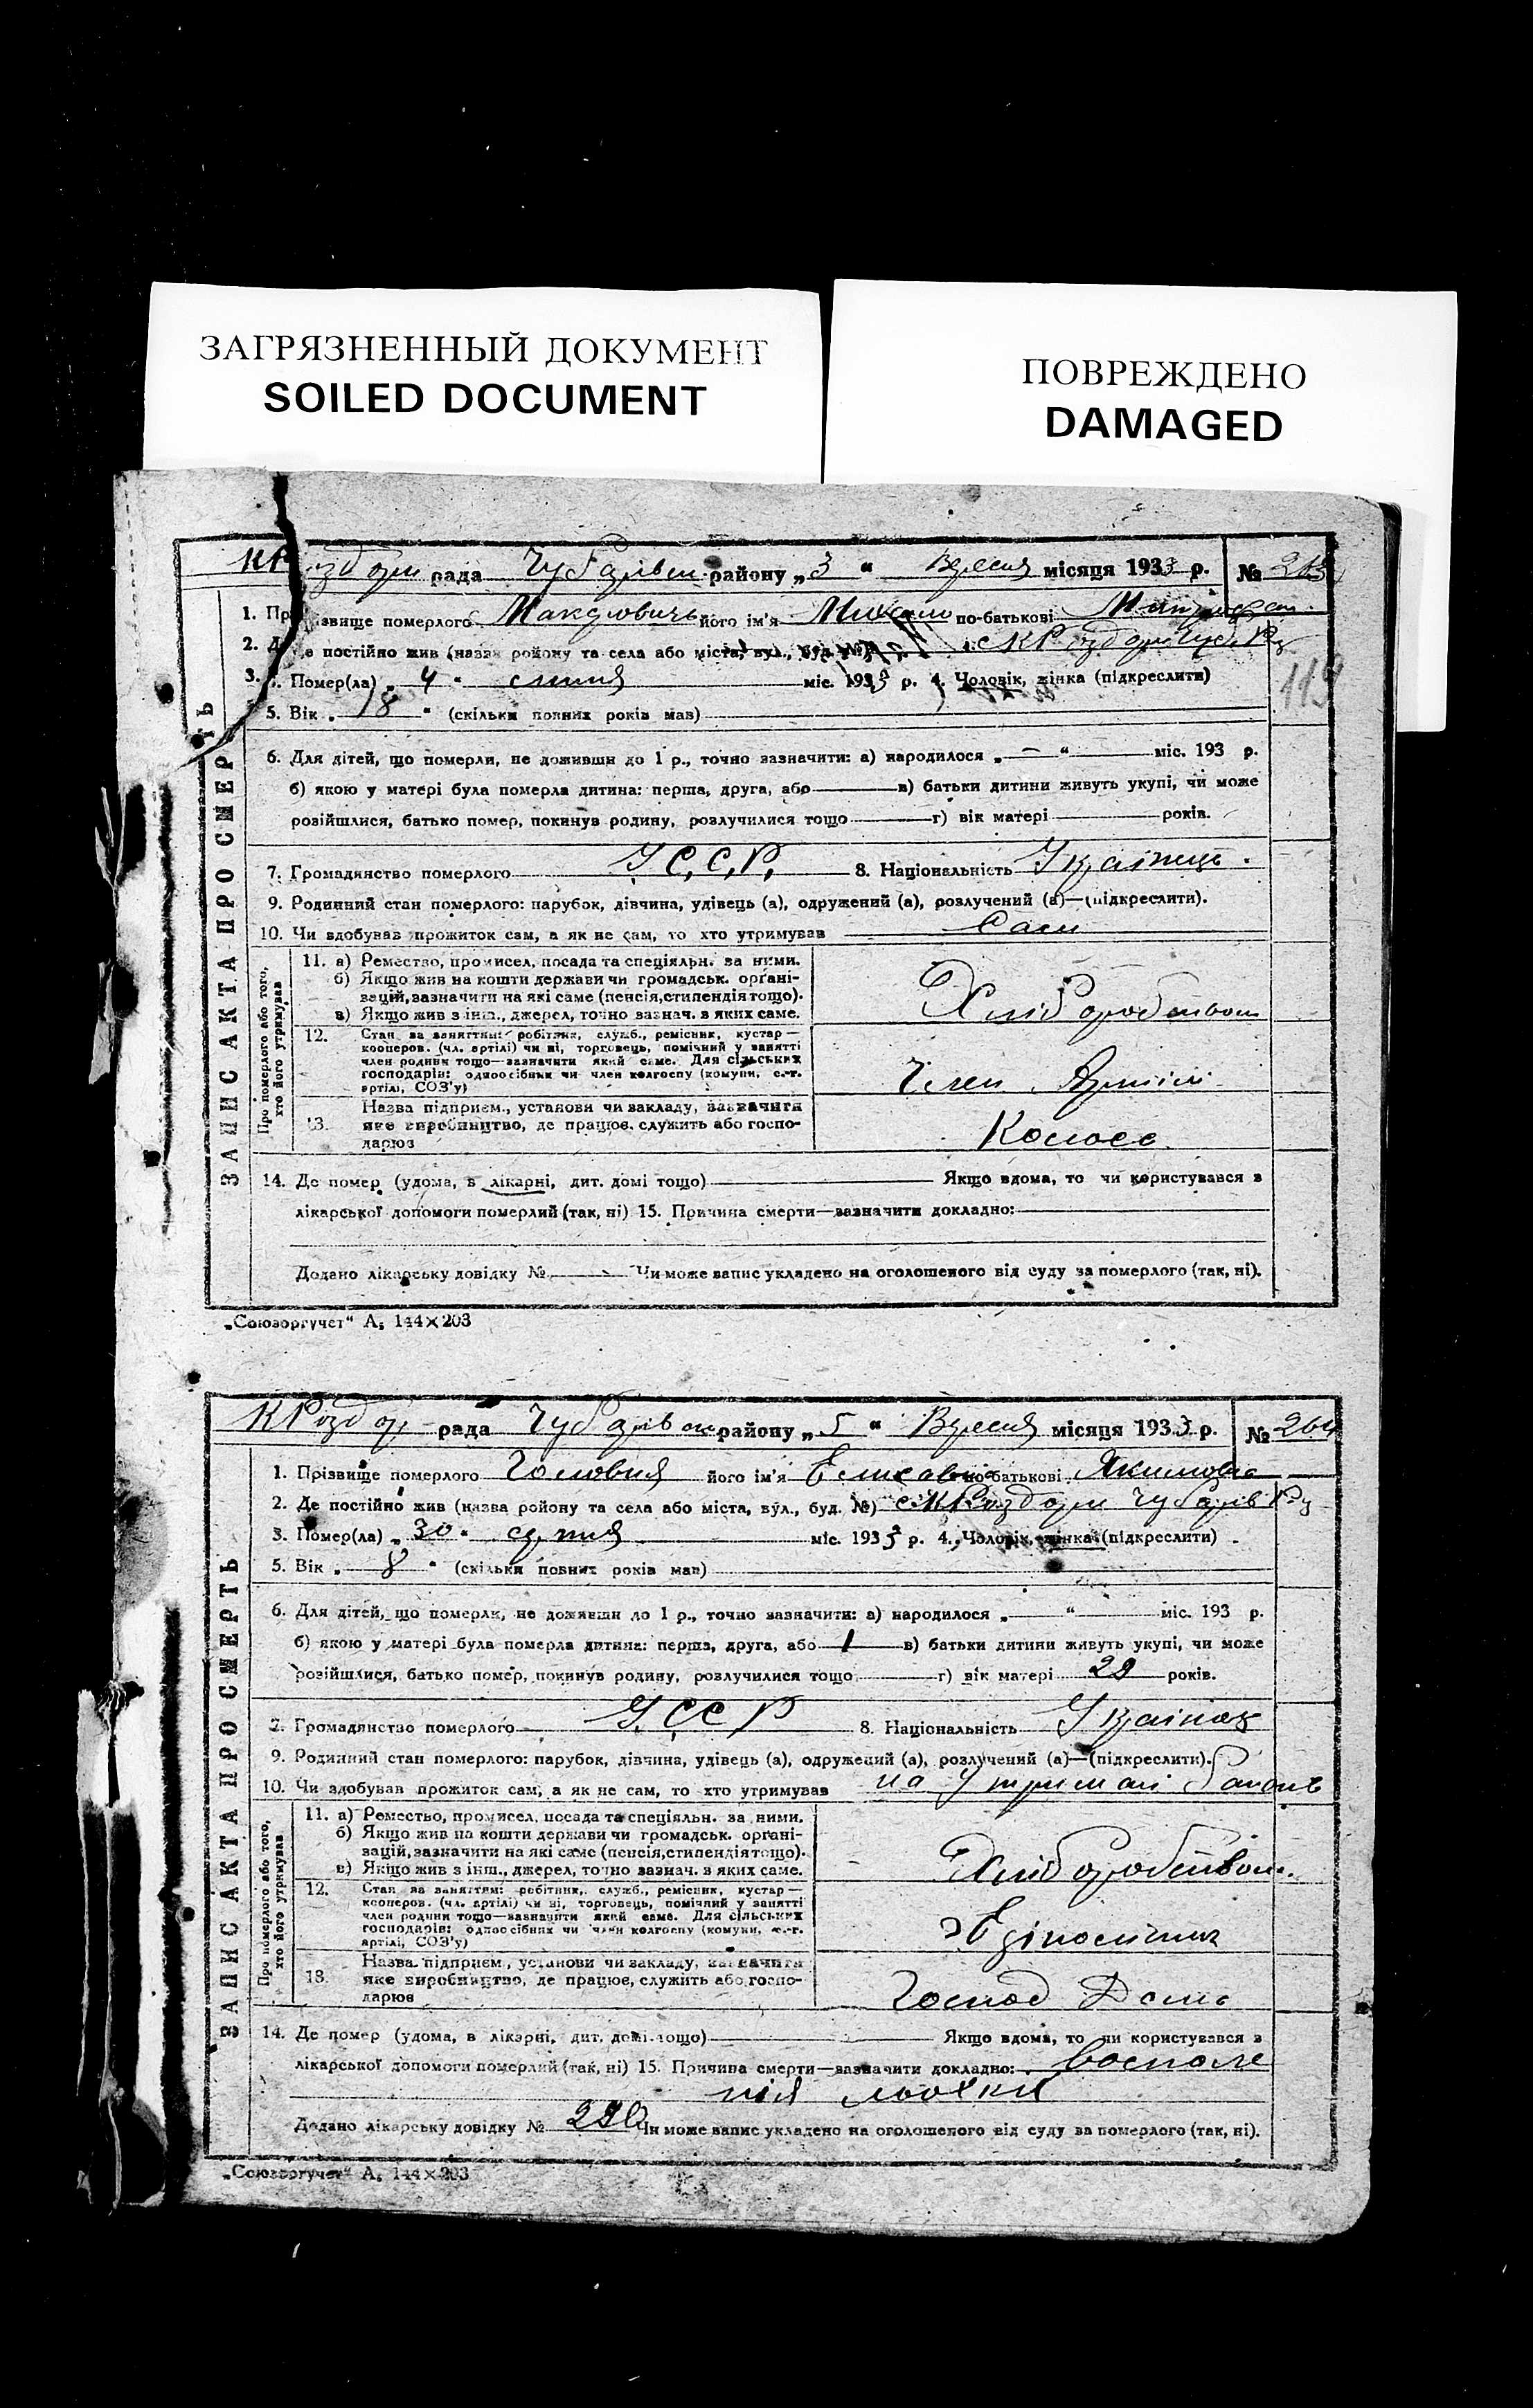 ЗАГРЯЗНЕННЫЙ ДОКУМЕНТ
SOILED DOCUMENT
ПОВРЕЖДЕНО
DAMAGED
рада району „3“ Вересня місяця 1933 р. № 263
1. Прізвище померлого його ім'я Михайло по-батькові
2. Де постійно жив (назва району та села або міста, вул., буд. №)
119
3. Помер(ла) „4“ липня міс. 1933 р. 4. Чоловік, жінка (підкреслити)
5. Вік „18“ (скільки повних років мав)
6. Для дітей, що померли, не доживши до 1 р., точно зазначити: а) народилося „—“ міс. 193 р.
б) якою у матері була померла дитина: перша, друга, або в) батьки дитини живуть укупі, чи може
розійшлися, батько помер, покинув родину, розлучилися тощо г) вік матері років.
7. Громадянство померлого У.С.С.Р. 8. Національність Українець.
9. Родинний стан померлого: парубок, дівчина, удівець (а), одружений (а), розлучений (а)—(підкреслити).
10. Чи здобував прожиток сам, а як не сам, то хто утримував Сам
ЗАПИС АКТА ПРО СМЕРТЬ
Про померлого або того, хто його утримував
11. а) Ремество, промисел, посада та спеціяльн. за ними.
б) Якщо жив на кошти держави чи громадськ. орґані-
зацій, зазначити на які саме (пенсія, стипендія тощо).
в) Якщо жив з інш., джерел, точно зазнач. в яких саме.
Хліборобством
12. Стан за заняттям: робітник, служб., ремісник, кустар—
кооперов. (чл. артілі) чи ні, торговець, помічний у занятті
член родини тощо—зазначити який саме. Для сільських
господарів: одноосібник чи член колгоспу (комуни, с.-г.
артілі, СОЗ'у)
Член Артілі
13. Назва підприєм., установи чи закладу, зазначити
яке виробництво, де працює, служить або госпо-
дарює
Колосс
14. Де помер (удома, в лікарні, дит. домі тощо) Якщо вдома, то чи користувався з
лікарської допомоги померлий (так, ні) 15. Причина смерти—зазначити докладно:
Додано лікарську довідку № Чи може запис укладено на оголошеного від суду за померлого (так, ні).
„Союзоргучет“ А₅ 144×203
рада району „5“ Вересня місяця 1933 р. № 264
1. Прізвище померлого Головня його ім'я Елисавета по-батькові Якимовна
2. Де постійно жив (назва району та села або міста, вул., буд. №)
3. Помер(ла) „30“ серпня міс. 1933 р. 4. Чоловік, жінка (підкреслити)
5. Вік „8“ (скільки повних років мав)
6. Для дітей, що померли, не доживши до 1 р., точно зазначити: а) народилося „ “ міс. 193 р.
б) якою у матері була померла дитина: перша, друга, або 1 в) батьки дитини живуть укупі, чи може
розійшлися, батько помер, покинув родину, розлучилися тощо г) вік матері 29 років.
7. Громадянство померлого УССР 8. Національність
9. Родинний стан померлого: парубок, дівчина, удівець (а), одружений (а), розлучений (а)—(підкреслити).
10. Чи здобував прожиток сам, а як не сам, то хто утримував на
ЗАПИС АКТА ПРО СМЕРТЬ
Про померлого або того, хто його утримував
11. а) Ремество, промисел, посада та спеціяльн. за ними.
б) Якщо жив на кошти держави чи громадськ. орґані-
зацій, зазначити на які саме (пенсія, стипендія тощо).
в) Якщо жив з інш., джерел, точно зазнач. в яких саме.
Хліборобством
12. Стан за заняттям: робітник, служб., ремісник, кустар—
кооперов. (чл. артілі) чи ні, торговець, помічний у занятті
член родини тощо—зазначити який саме. Для сільських
господарів: одноосібник чи член колгоспу (комуни, с.-г.
артілі, СОЗ'у)
13. Назва підприєм., установи чи закладу, зазначити
яке виробництво, де працює, служить або госпо-
дарює
Господ
14. Де помер (удома, в лікарні, дит. домі тощо) Якщо вдома, то чи користувався з
лікарської допомоги померлий (так, ні) 15. Причина смерти—зазначити докладно: воспале
ния
Додано лікарську довідку № Чи може запис укладено на оголошеного від суду за померлого (так, ні).
„Союзоргучет“ А₅ 144×203